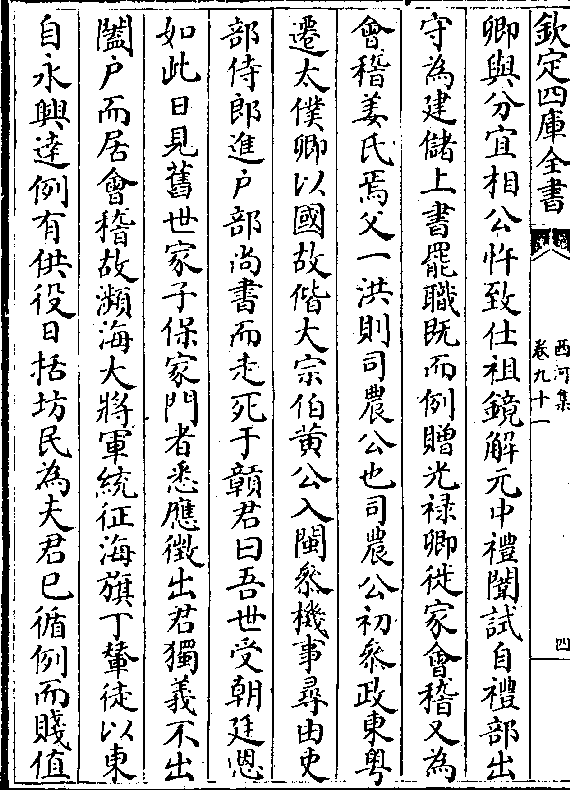 欽定四庫全書
西河集
卷九十一
四
卿與分宜相公忤致仕祖鏡解元中禮闈試自禮部出
守為建儲上書罷職既而例贈光禄卿徙家會稽又為
會稽姜氏焉父一洪則司農公也司農公初叅政東粤
遷太僕卿以國故偕大宗伯黄公入閩叅機事尋由吏
部侍郎進户部尚書而走死于贛君曰吾世受朝廷恩
如此日見舊世家子保家門者悉應徴出君獨義不出
闔户而居會稽故瀕海大將軍統征海旗丁輦徒以東
自永興達例有供役日括坊民為夫君已循例而賤值